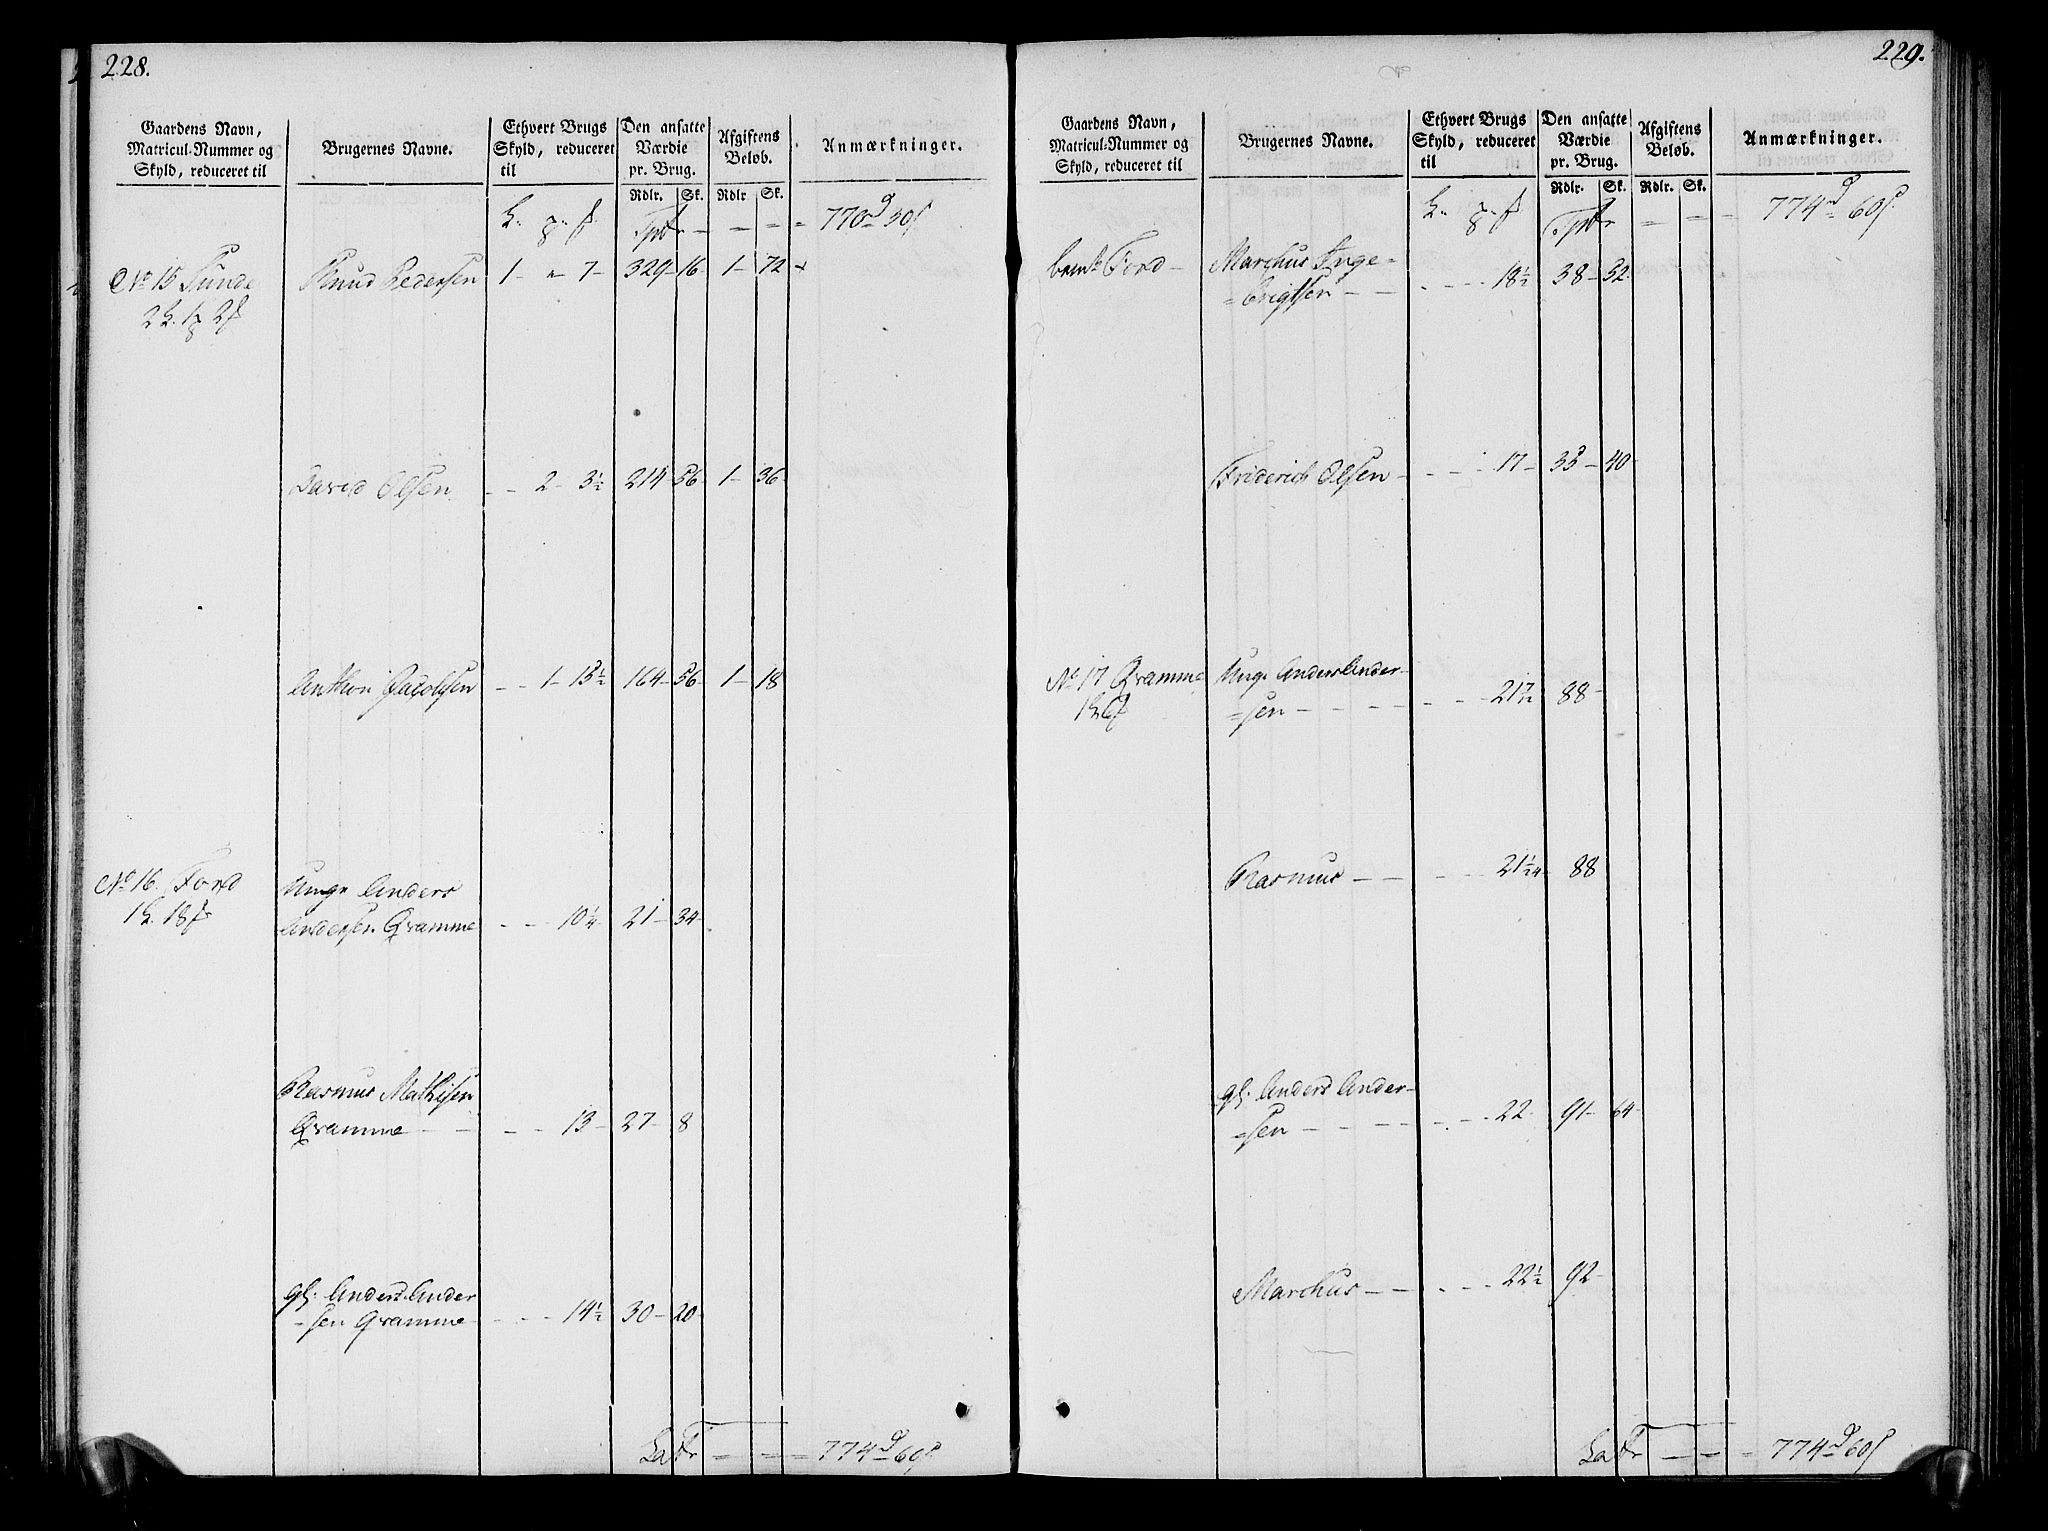 228.
Gaardens Navn, Matricul-Nummer og Skyld, reduceret til | Brugernes Navne. | Ethvert Brugs Skyld, reduceret til | Den ansatte Værdie pr. Brug. | Afgiftens Beløb. | Anmærkninger.
Rdlr. Sk. Rdlr Sk.
Tpr — — — 770 d 30 s
No 15 Sunde Knud Pedersen 1 - " 7 - 329 - 16 - 1 - 72
David Olsen - - 2 - 3½ 214 - 56 - 1 - 36
Anthon Jacobsen - - 1 - 15½ 164 - 56 - 1 - 18
No 16. Ford Unge Anders
Andersen Gramme - - 10¼ 21 - 34 -
Rasmus Mathisen
Gramme - - 13 - 27 - 8
gl. Anders Ander
=sen Gramme - - - 14½ 30 - 20 -
Latr = = = 774 d 60 s
229.
Gaardens Navn, Matricul-Nummer og Skyld, reduceret til | Brugernes Navne. | Ethvert Brugs Skyld, reduceret til | Den ansatte Værdie pr. Brug. | Afgiftens Beløb. | Anmærkninger.
Rdlr. Sk. Rdlr. Sk.
Tpr = — — 774 d 60 s
bemte Ford Marchus Inge=
=brigtsen - - - 18½ 38 - 32
Friderich Olsen - - - 17 - 35 - 40
No 17 Gramme Unge Anders Ander-
=sen - - - 88 -
Rasmus - - - 88
gl. Anders Ander-
=sen - - - 22 - 91 - 64
Marchus - - - 22½ 92 -
Latr — — = 774 d 60 s